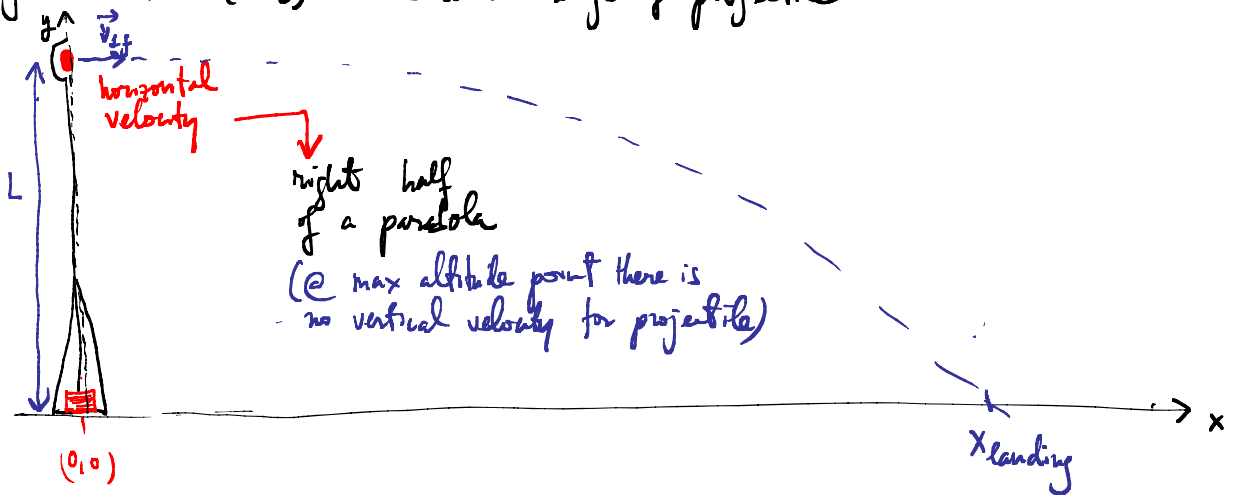 projectile
y
v⃗1f
horizontal
velocity
L
right half
of a parabola
(@ max altitude point there is
no vertical velocity for projectile)
x
xlanding
(0,0)